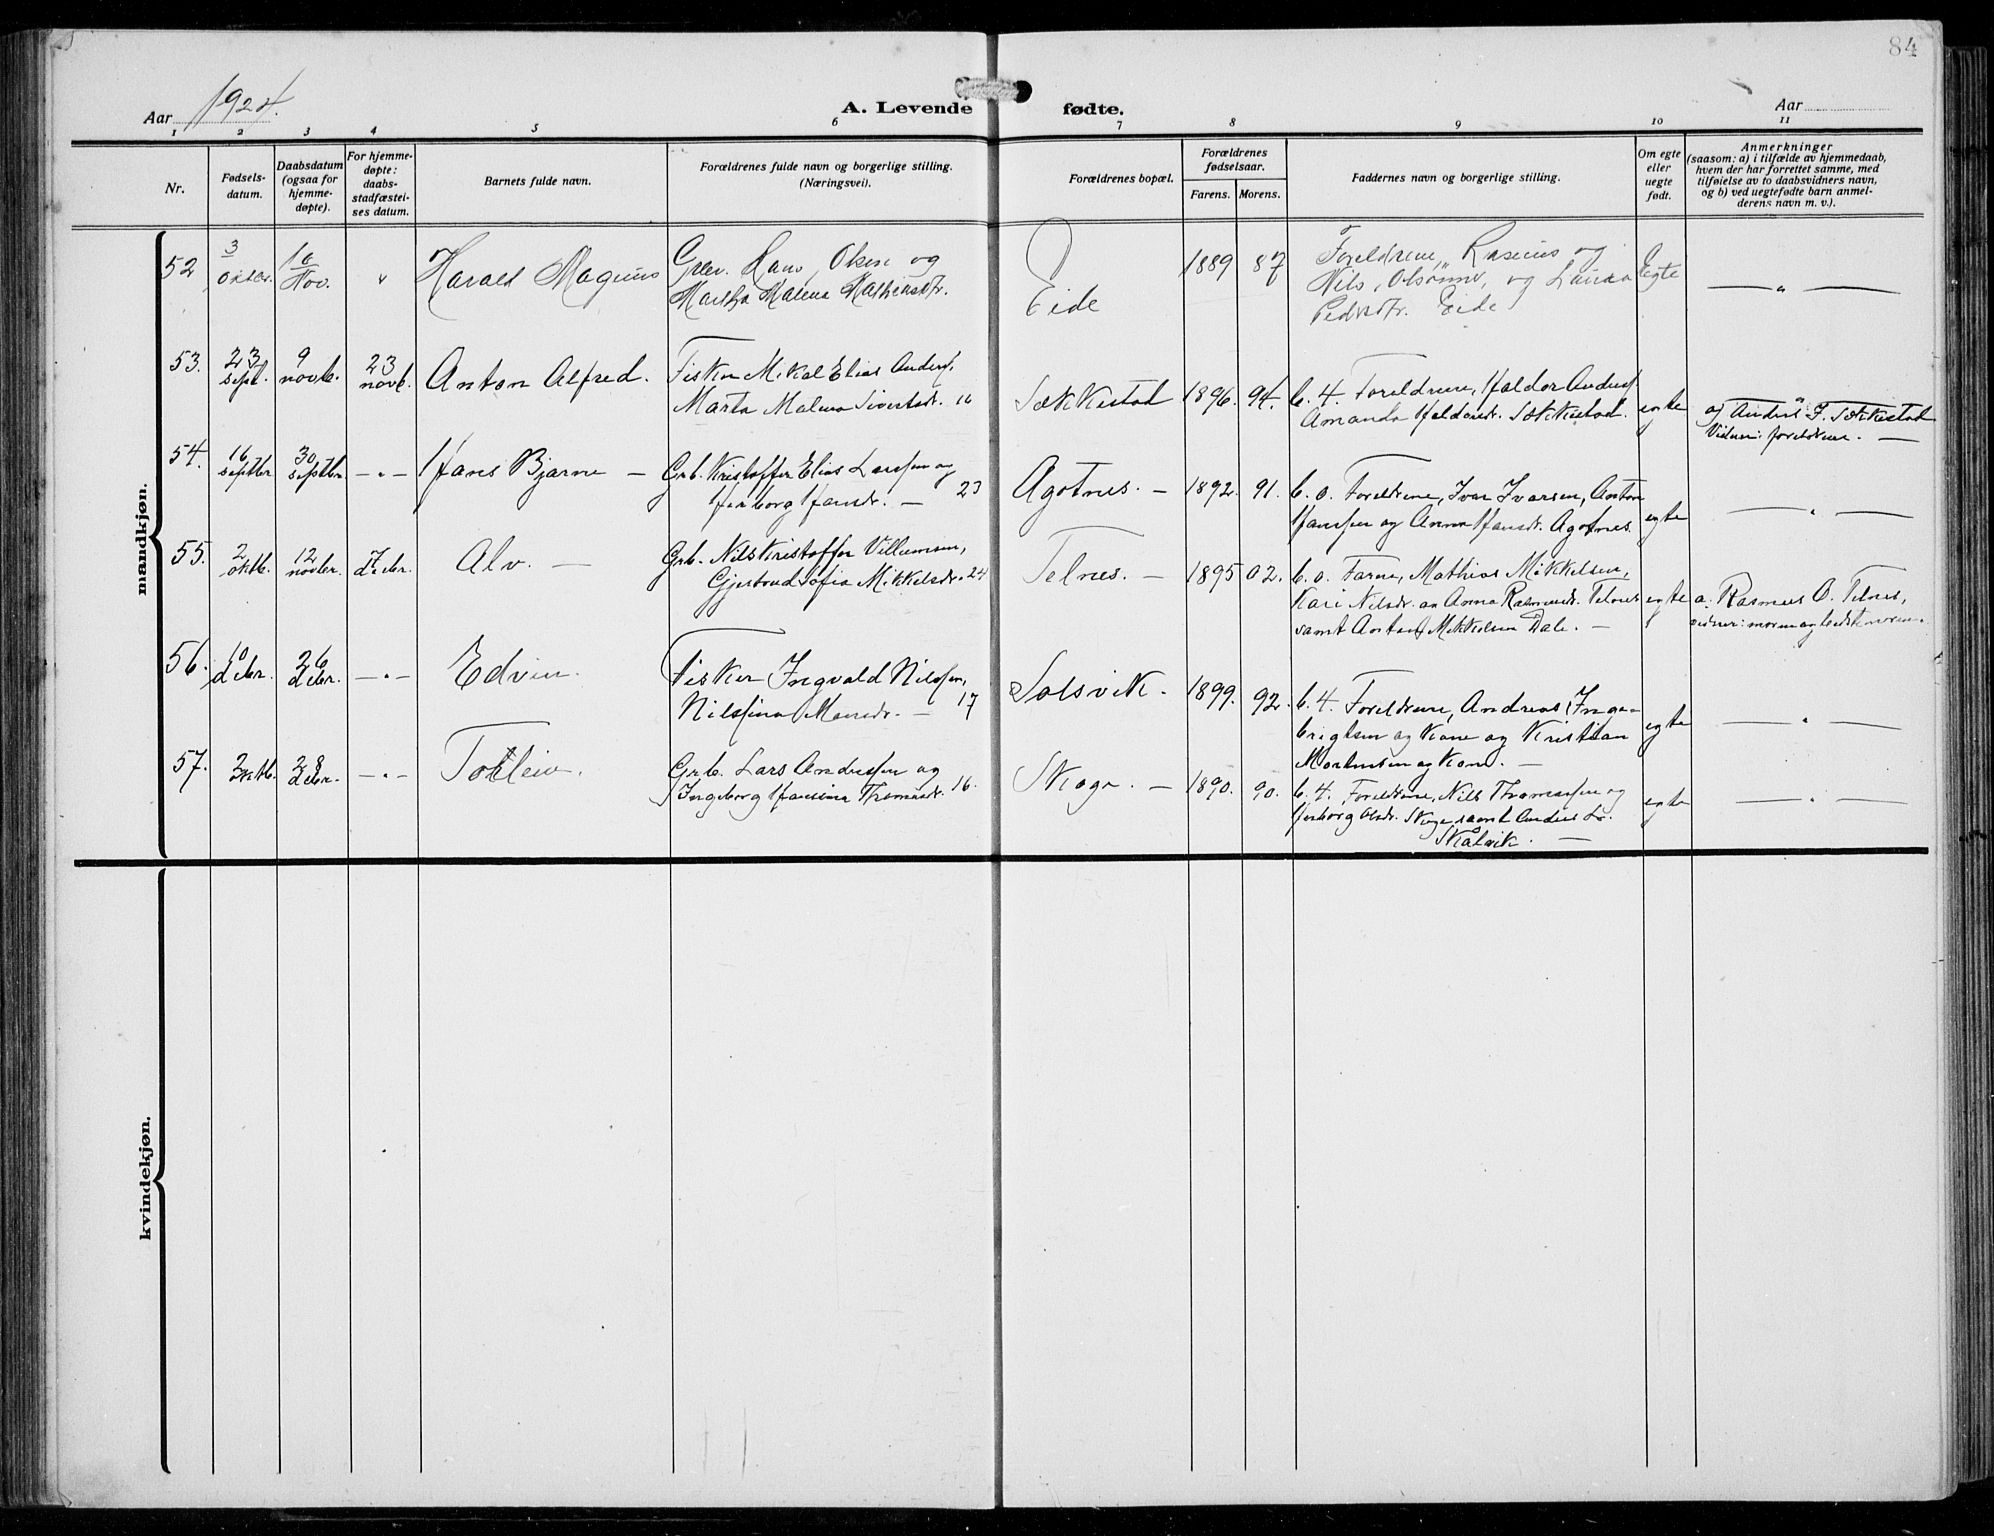 84
Aar 1924.
A. Levende
fødte.
Aar
1 2 3 4 5 6 7 8 9 10 11
Nr.
Fødsels-
datum.
Daabsdatum
(ogsaa for
hjemme-
døpte).
For hjemme-
døpte:
daabs-
stadfæstel-
ses datum.
Barnets fulde navn.
Forældrenes fulde navn og borgerlige stilling.
(Næringsvei).
Forældrenes bopæl.
Forældrenes
fødselsaar.
Farens. Morens.
Faddernes navn og borgerlige stilling.
Om egte
eller
uegte
født.
Anmerkninger
(saasom: a) i tilfælde av hjemmedaab,
hvem der har forrettet samme, med
tilføielse av to daabsvidners navn,
og b) ved uegtefødte barn anmel-
derens navn m. v.).
mandkjøn.
52 3 Oktbr. 16 Nov. " Harald Magnus
Hans Olsen og
Martha Malena
Eide
1889 87
Foreldrene, Rasmus og
Nils Olsønner, og Laura
Pedersdtr. Eide
Egte
— " —
53. 23 sept. 9 novb. 23 novb. Anton Alfred.
Fisker Mikal Elias Anders.
Marta Malena Sivertsdr. 16
Sækkestad
1896. 94.
b. 4. Foreldrene, Haldor Anders.
Amanda Haldorsdr. Sækkestad.
egte
a) Anders J. Sækkestad
Vidner: foreldrene. —
54. 16 septbr 30 septbr. -"- Hans Bjarne —
Grb. Kristoffer Elias Larssen og
Herborg Hansdr. — 23
Agotnes. —
1892. 91.
b. o. Foreldrene, Ivar Ivarsen, Anton
Hanssen og Anna Hansdr. Agotnes.
egte
— " —
55. 2 oktb. 12 novbr. 7 debr. Alv. —
Grb. Nils Kristoffer Villumsen,
Gjertrud Sofia Mikkelsdr. 24
Telnes. —
1895 02.
b. o. Farne, Mathias Mikkelsen,
Kari Nilsdr. og Anna Rasmusdr. Telnes
samt Anton Mikkelsen Dale. —
egte
a. Rasmus O. Telnes,
vidner: moren og bedstemoren.
56. 10 debr. 26 debr. -"- Edvin.
Fisker Ingvald Nilssen,
Nilsina Monsdr. — 17
Solsvik.
1899. 92.
b. 4. Foreldrene, Andreas Inge-
brigtsen og Kone og Kristian
Mortensen og Kone. —
egte
— " —
57. 2 oktb. 28 debr. -"- Tolleiv.
Grb. Lars Anderssen og
Ingeborg Hansina Thomasdr. 16.
Skoge. —
1890. 90.
b. 4. Foreldrene, Nils Thomassen og
Herborg Olsdr. Skoge samt Anders L.
Skålvik. —
egte
— " —
kvindekjøn.